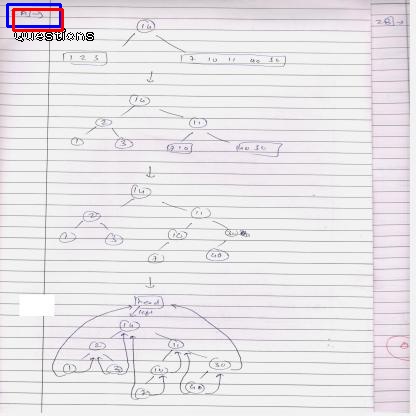 A1→
Questions
14
1 2 3
7 10 11 40 30
14
2 11
1 3 7 10 40 30
14
2 11
1 3 10
7 40
head
left
14
2 11
1 10 30
7 40